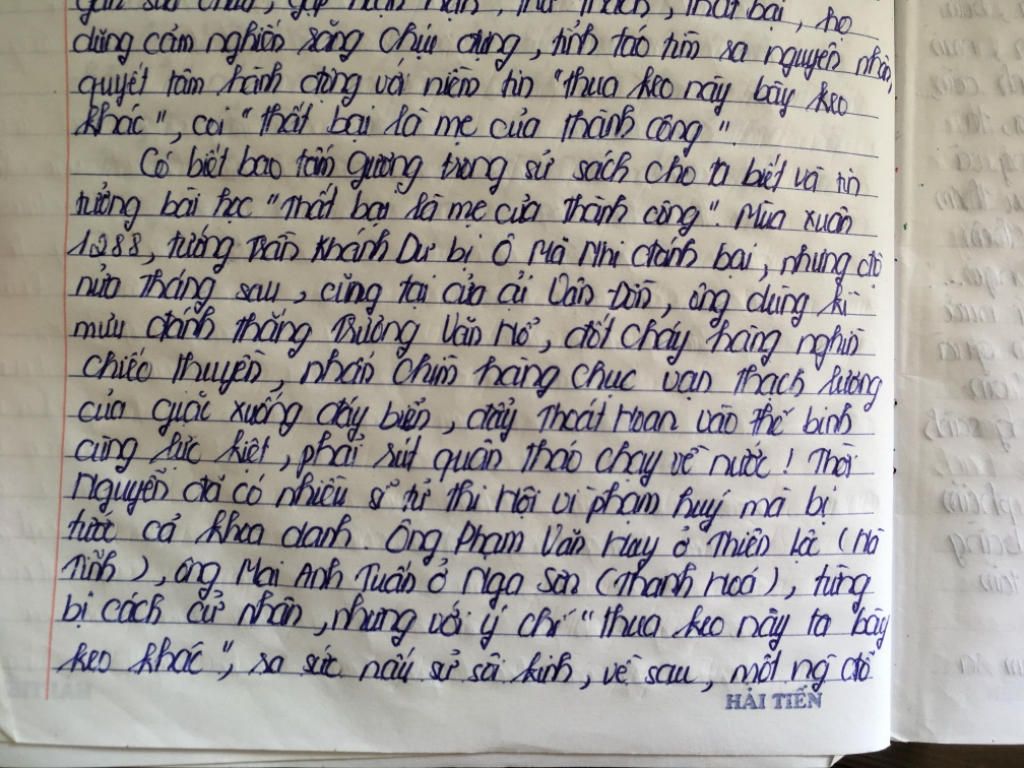 gan sửa chữa, gặp nạn, thử thách, thất bại, họ
dũng cảm nghiến răng chịu đựng, tỉnh táo tìm ra nguyên nhân,
quyết tâm hành động với niềm tin "thua keo này bày keo
khác", coi "thất bại là mẹ của thành công".
Có biết bao tấm gương trong sử sách cho ta biết và tin
tưởng bài học "Thất bại là mẹ của thành công". Mùa xuân
1288, tướng Trần Khánh Dư bị Ô Mã Nhi đánh bại, nhưng độ
nửa tháng sau, cũng tại cửa cải Vân Đồn, ông dùng kì
mưu đánh thắng Trương Văn Hổ, đốt cháy hàng nghìn
chiếc thuyền, nhấn chìm hàng chục vạn thạch lương
của giặc xuống đáy biển, đẩy Thoát Hoan vào thế binh
cùng lực kiệt, phải rút quân tháo chạy về nước! Thời
Nguyễn đã có nhiều sĩ tử thi Hội vì phạm huý mà bị
tước cả khoa danh. Ông Phạm Văn Hay ở Thiên Lộc (Hà
Tĩnh), ông Mai Anh Tuấn ở Nga Sơn (Thanh Hoá), từng
bị cách cử nhân, nhưng với ý chí "thua keo này ta bày
keo khác", ra sức nấu sử sôi kinh, về sau, một ng đỗ
HẢI TIẾN